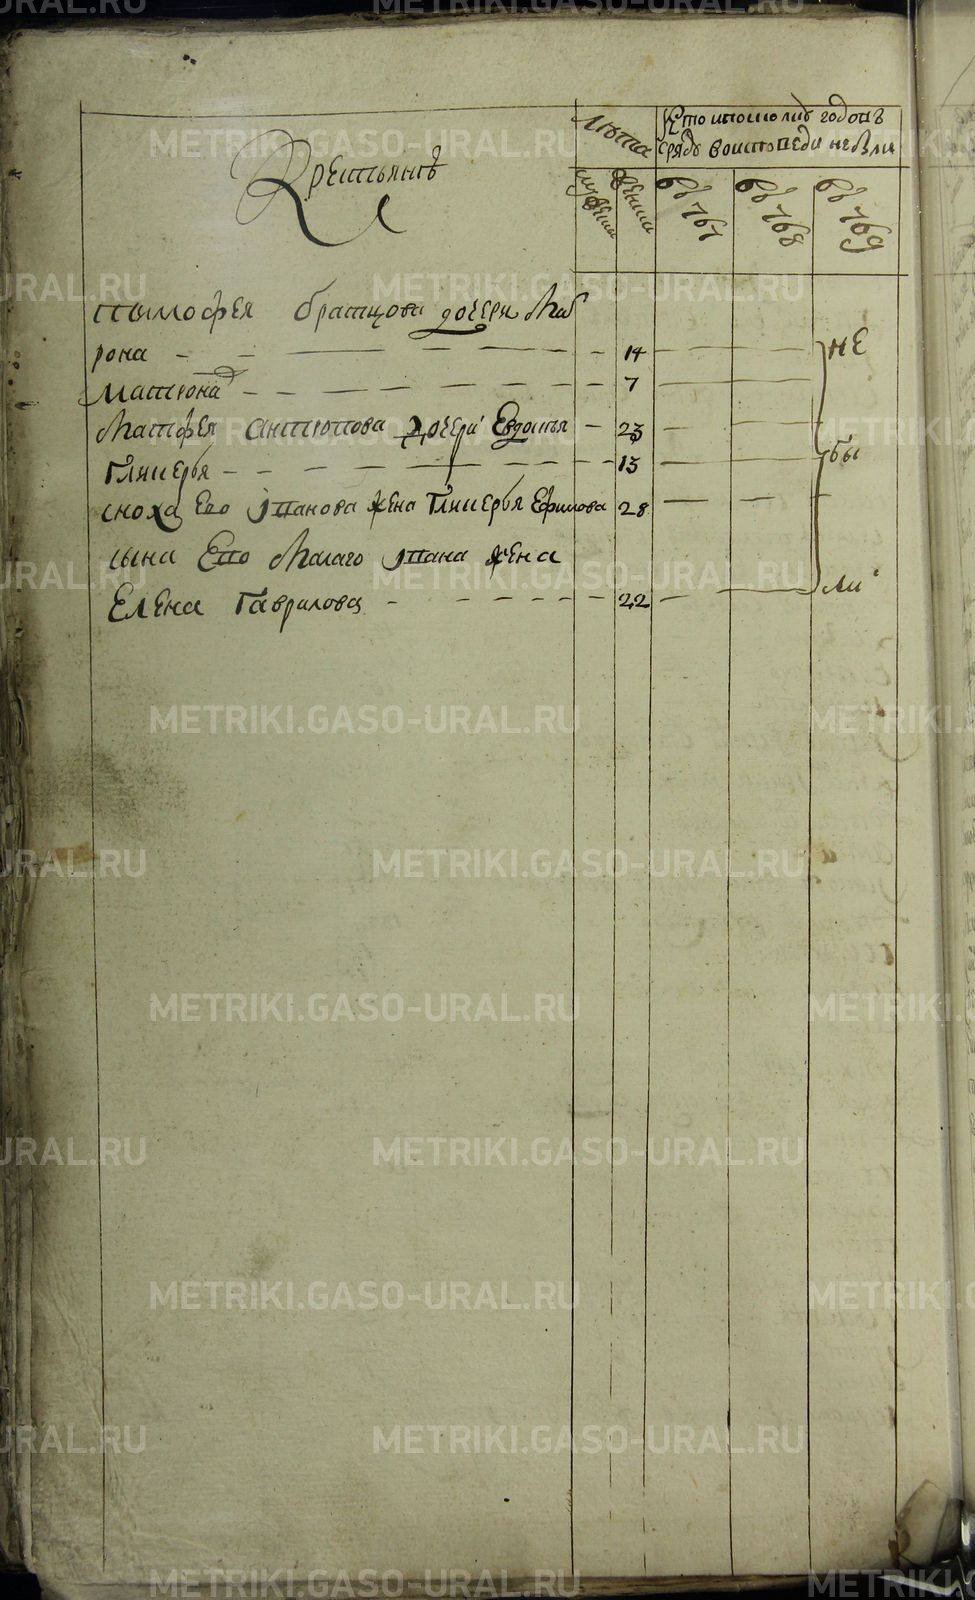 Крестьянъ
Лѣта
Кто и по скольку годовъ
срядъ во исповеди не были
мужеска
женска
въ 767
въ 768
въ 769
тимофея братцова дочери Мав
рона 14
Матрона 7
Матфея антипова дочери Евдокья 23
Гликерья 13
сноха Ево Иванова жена Гликерья Ефимова 28
сына Ево Малаго Ивана жена
Елена Гаврилова 22
не
бы
ли
METRIKI.GASO-URAL.RU